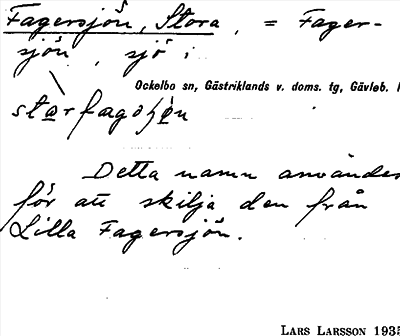 Fagersjön, Stora, = Fager-
sjön, sjö i
Ockelbo sn, Gästriklands v. doms. tg, Gävleb.
Detta namn användes
för att skilja den från
Lilla Fagersjön.
LARS LARSSON 1935